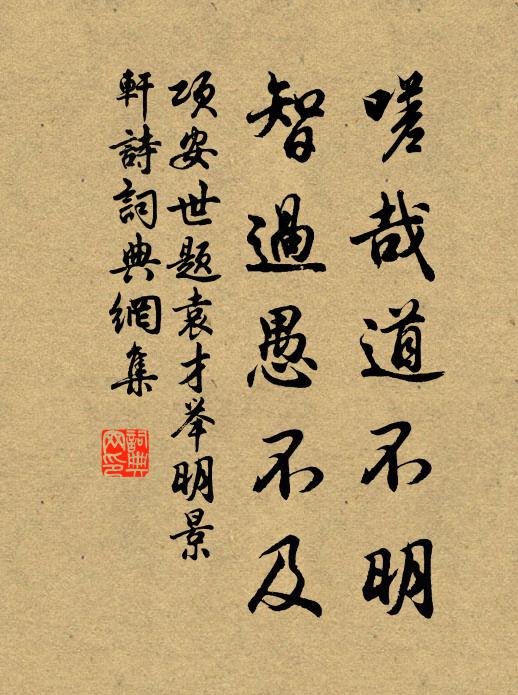 嗟哉道不明
智過愚不及
项安世题袁才举明景
軒詩詞典網集
詞典網印